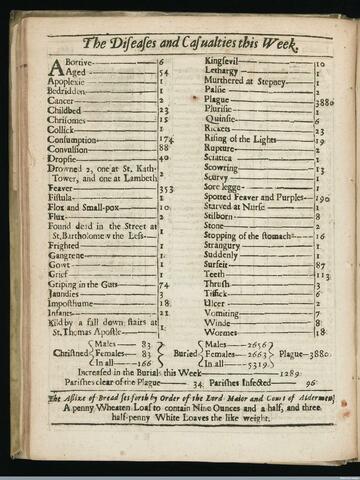 The Diseases and Casualties this Week.
Abortive 6
Aged 54
Apoplexie 1
Bedridden 1
Cancer 2
Childbed 23
Chrisomes 15
Collick 1
Consumption 174
Convulsion 88
Dropsie 40
Drowned 2, one at St. Kath-
Tower, and one at Lambeth 2
Feaver 353
Fistula 1
Flox and Small-pox 10
Flux 2
Found dead in the Street at
St. Bartholomew the Less 1
Frighted 1
Gangrene 1
Gowt 1
Grief 1
Griping in the Guts 74
Jaundies 3
Imposthume 18
Infants 21
Kild by a fall down stairs at
St. Thomas Apostle 1
Kingsevil 10
Lethargy 1
Murthered at Stepney 1
Palsie 2
Plague 3880
Plurisie 1
Quinsie 6
Rickets 23
Rising of the Lights 19
Rupture 2
Sciatica 1
Scowring 13
Scurvy 1
Sore legge 1
Spotted Feaver and Purples 190
Starved at Nurse 1
Stilborn 8
Stone 2
Stopping of the stomach 16
Strangury 1
Suddenly 1
Surfeit 87
Teeth 113
Thrush 3
Tissick 6
Ulcer 2
Vomiting 7
Winde 8
Wormes 18
Christned Males 83 Females 83 In all 166 Buried Males 2656 Females 2663 In all 5319 Plague 3880
Increased in the Burials this Week 1289
Parishes clear of the Plague 34 Parishes Infected 96
The Assize of Bread set forth by Order of the Lord Maior and Court of Aldermen,
A penny Wheaten Loaf to contain Nine Ounces and a half, and three
half-penny White Loaves the like weight.